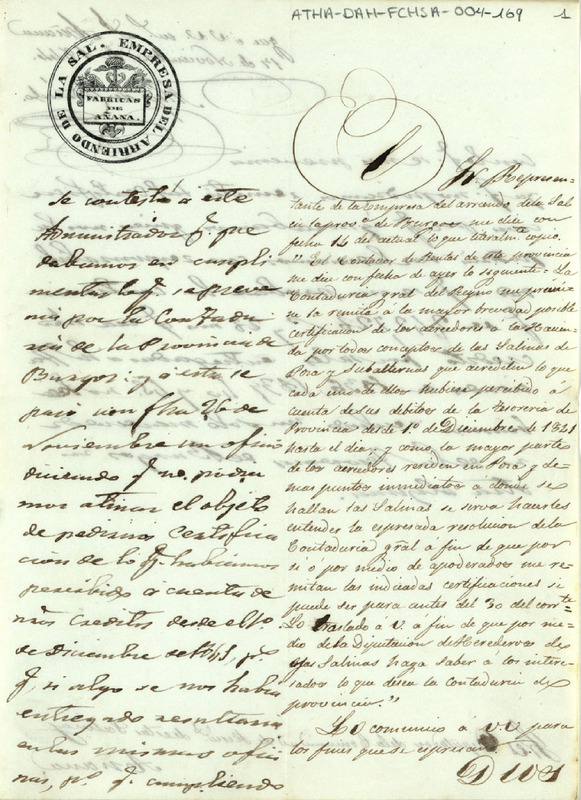 ATHA-DAH-FCHSA-004-169
1
EMPRESA DEL ARRIENDO DE LA SAL.
FABRICAS
DE
AÑANA.
El Represen-
tante de la Empresa del arriendo de la Sal
en la prov.ª de Burgos me dice con
fecha 14 del actual lo que literalm.te copio.
"El Contador de Rentas de esta provincia
me dice con fecha de ayer lo siguiente: La
Contaduria gral del Reyno me previe-
ne la remita a la mayor brevedad posible
certificacion de los acredores a la Hacien-
da por todos conceptos de las Salinas de
Poza y Subalternas que acredite lo que
cada uno de ellos hubiese percibido á
cuenta de sus debitos de la Tesoreria de
Provincia desde 1º de Diciembre de 1841
hasta el dia; y como la mayor parte
de los acredores residen en Poza y de-
mas puntos inmediatos a donde se
hallan las Salinas se sirva haserles
entender la espresada resolucion de la
Contaduria gral á fin de que por
si o por medio de apoderados me re-
mitan las indicadas certificaciones si
puede ser para antes del 30 del corr.te
Lo traslado á V. a fin de que por me-
dio de la Diputacion de Herederos de
esas Salinas haga saber a los intere-
sados lo que desea la Contaduria de
provincia."
Lo comunico á VV para
los fines que se espresan
D
Se contestó á este
Administrador q. pre
dabamos en cumpli
mentar lo q. se preve
nia por la Contadu
ria de la Provincia de
Burgos: y á esta se
pasó con fha 26 de
Noviembre un oficio
diciendo q. no podia
mos atinar el objeto
de pedirnos certifica
cion de lo q. habiamos
percibido á cuenta de
nros creditos desde el 1º
de Diciembre de 1841, p.s
q. si algo se nos habia
entregado resultaria
en las mismas ofici
nas, p.o q. cumpliendo